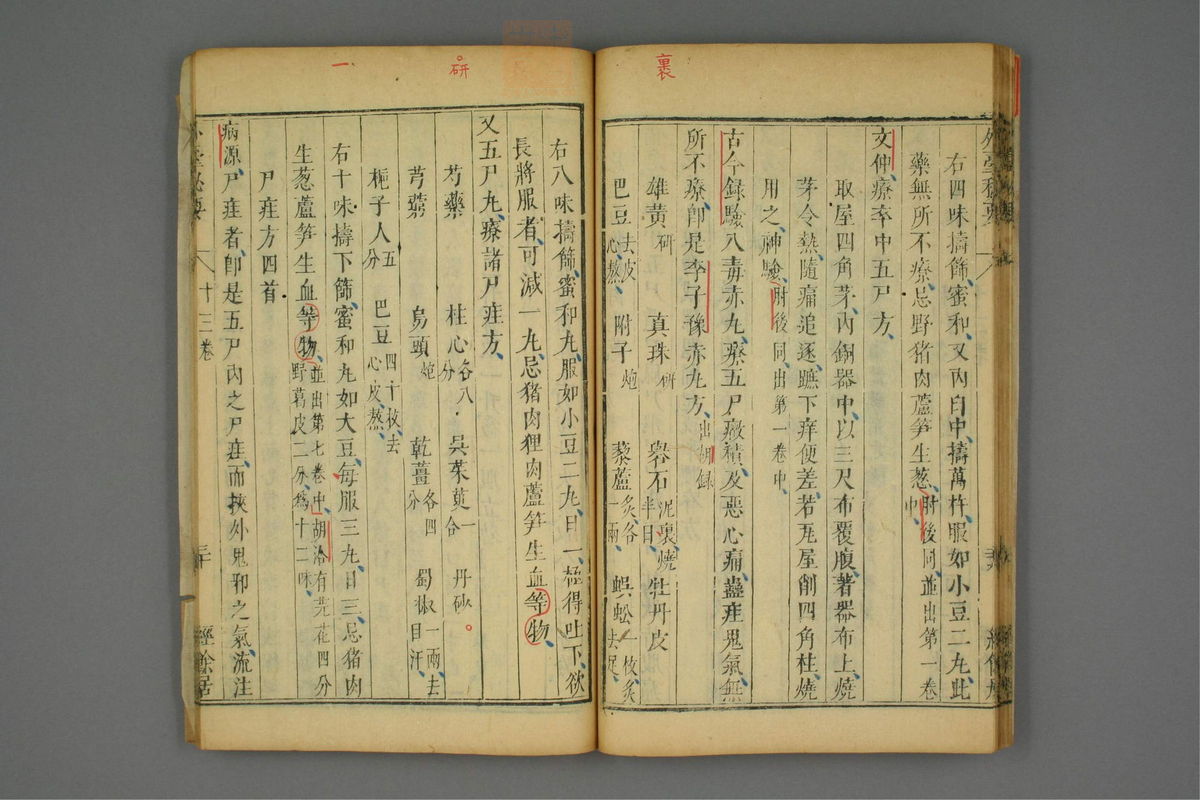 裏
外臺秘要
右四味擣篩蜜和又內臼中擣萬杵服如小豆二丸此
藥無所不療忌野猪肉蘆笋生葱肘後同並出第一卷中
文仲療卒中五尸方
取屋四角茅內銅器中以三尺布覆腹著器布上燒
茅令熱隨痛追逐蹠下痒便差若瓦屋削四角柱燒
用之神驗肘後同出第一卷中
古今錄驗八毒赤丸療五尸癥積及惡心痛蠱疰鬼氣無
所不療即是李子豫赤丸方出胡錄
雄黃研 真珠研 礜石泥裹燒半日 牡丹皮
巴豆去皮心熬 附子炮 藜蘆炙各一兩 蜈蚣一枚炙去足
研
一
右八味擣篩蜜和丸服如小豆二丸日一極得吐下欲
長將服者可減一丸忌猪肉狸肉蘆笋生血等物
又五尸丸療諸尸疰方
芍藥 桂心各八分 吳茱萸一合 丹砂
芎藭 烏頭炮 乾薑各四分 蜀椒一兩去目汗
梔子人五分 巴豆四十枚去心皮熬
右十味擣下篩蜜和丸如大豆每服三丸日三忌猪肉
生葱蘆笋生血等物並出第七卷中胡洽有芫花四分野葛皮二分為十二味
尸疰方四首
病源尸疰者卽是五尸內之尸疰而挾外鬼邪之氣流注
外臺秘要 十三卷 三十 經餘居